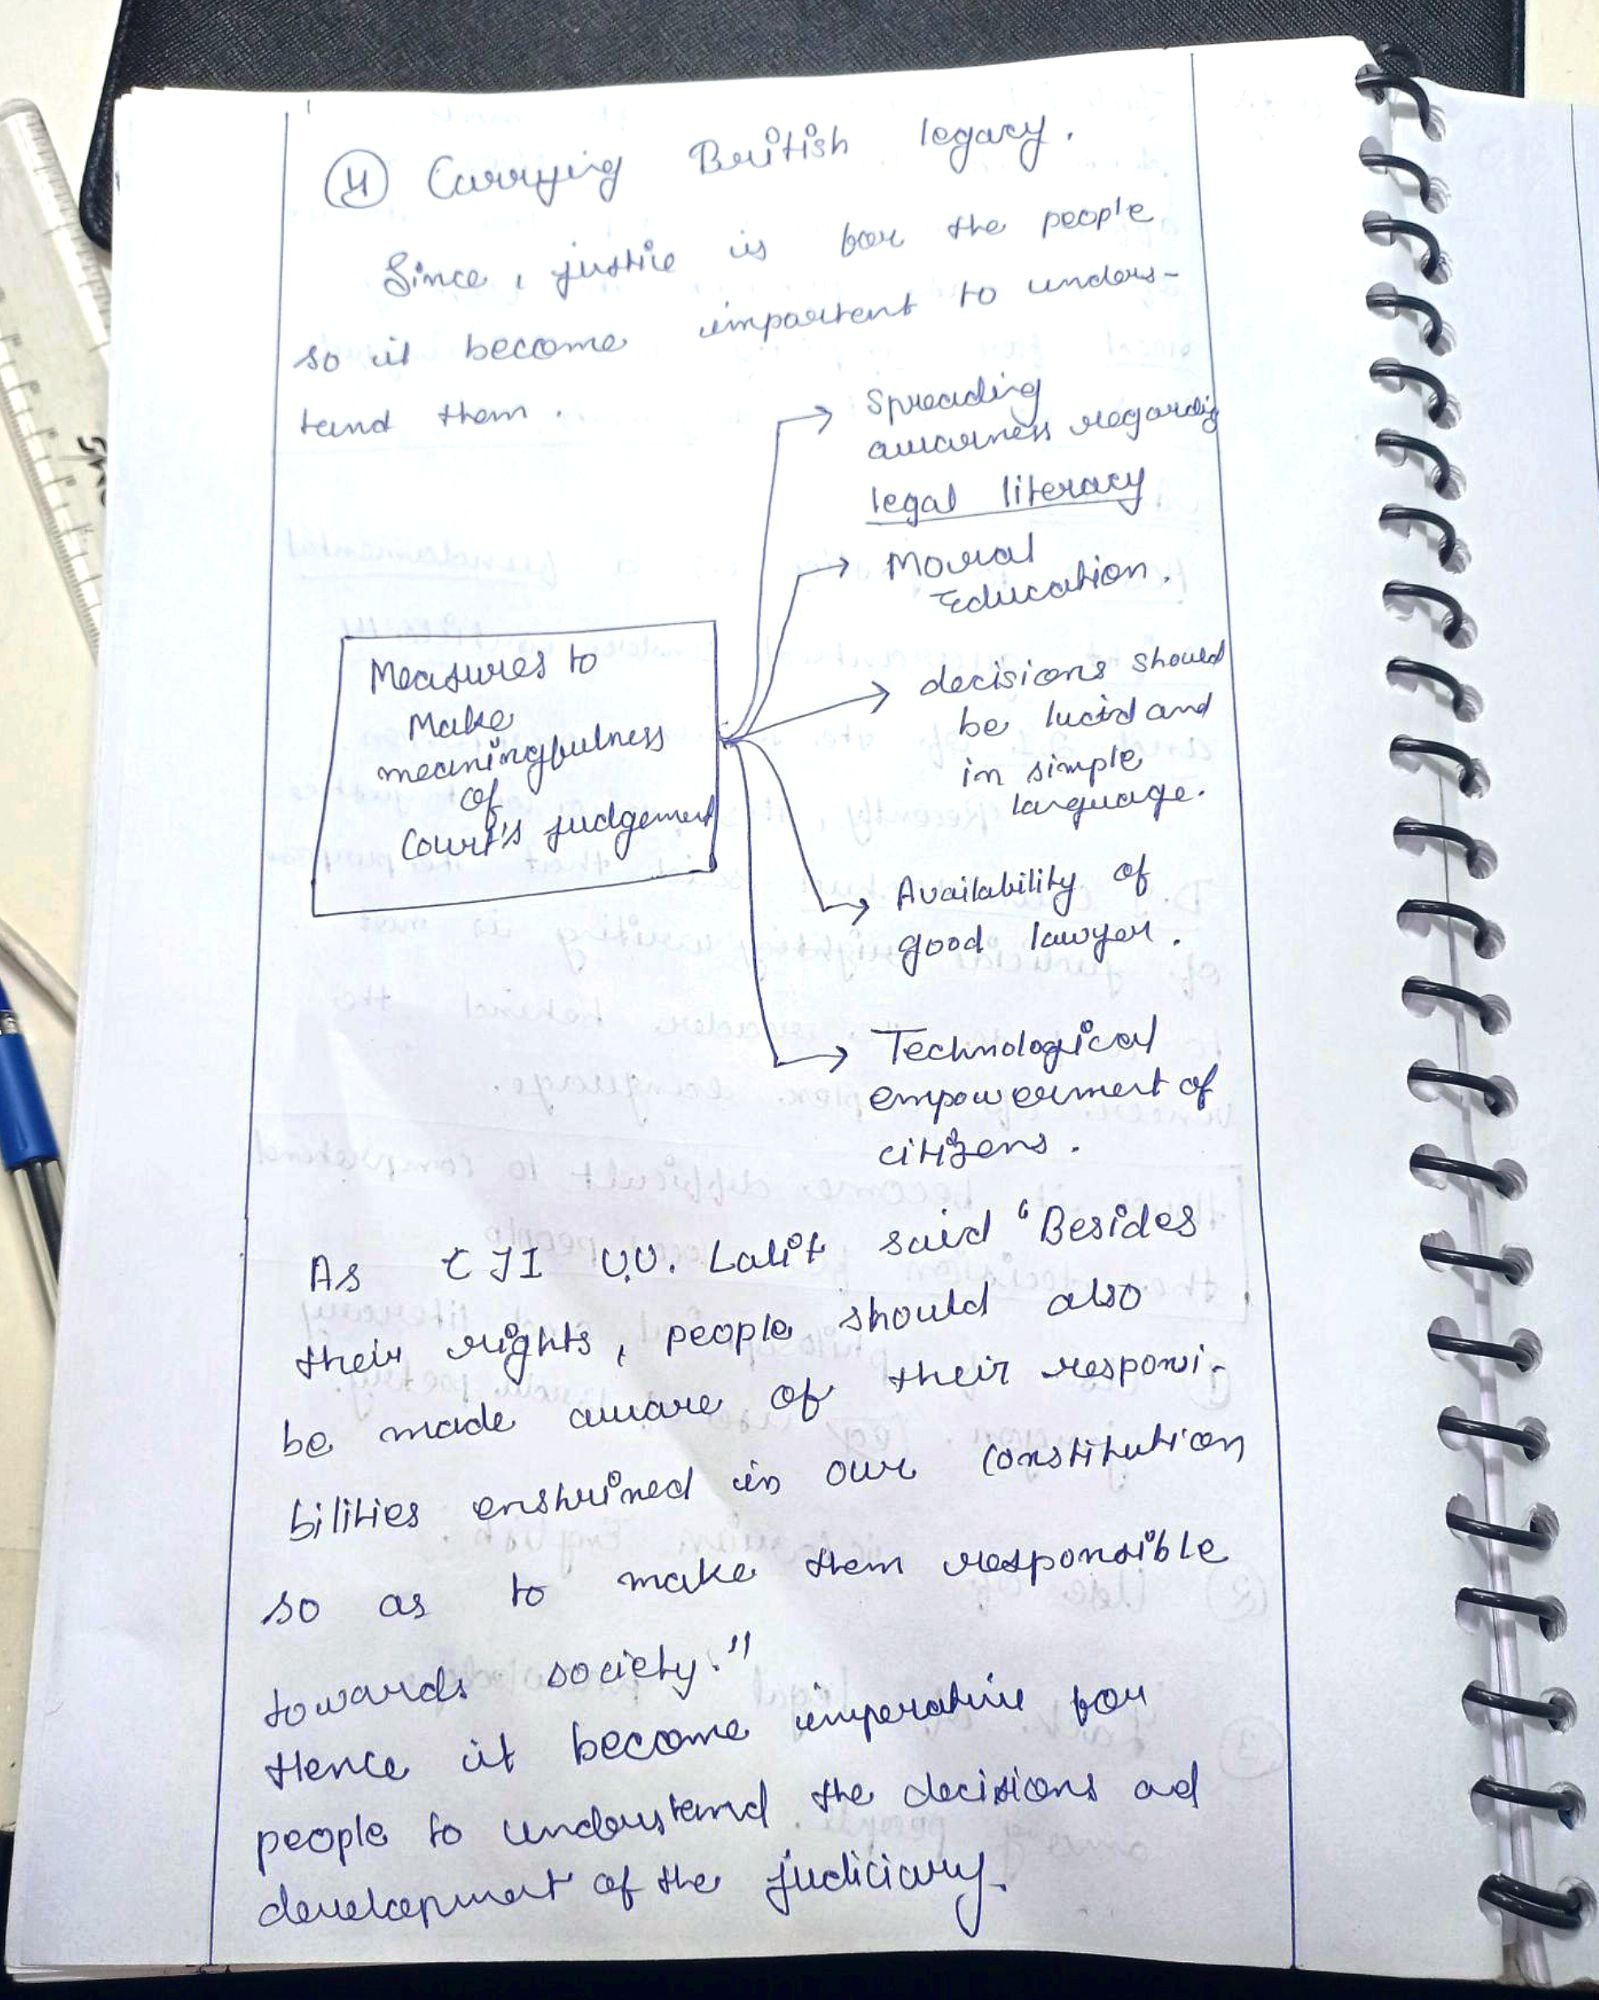 ④ Carrying British legacy.
Since, justice is for the people
so it become important to unders-
tand them.
Spreading
awarness regardig
legal literacy
Moral
Education.
Measures to
Make
meaningfulness
of
Court's judgement
decisions should
be lucid and
in simple
language.
Availability of
good lawyer.
Technological
empowerment of
citizens.
As CJI U.U. Lalit said "Besides
their rights, people should also
be made aware of their responsi-
bilities enshrined in our constitution
so as to make them responsible
towards society."
Hence it become imperative for
people to understand the decisions ad
development of the judiciary.